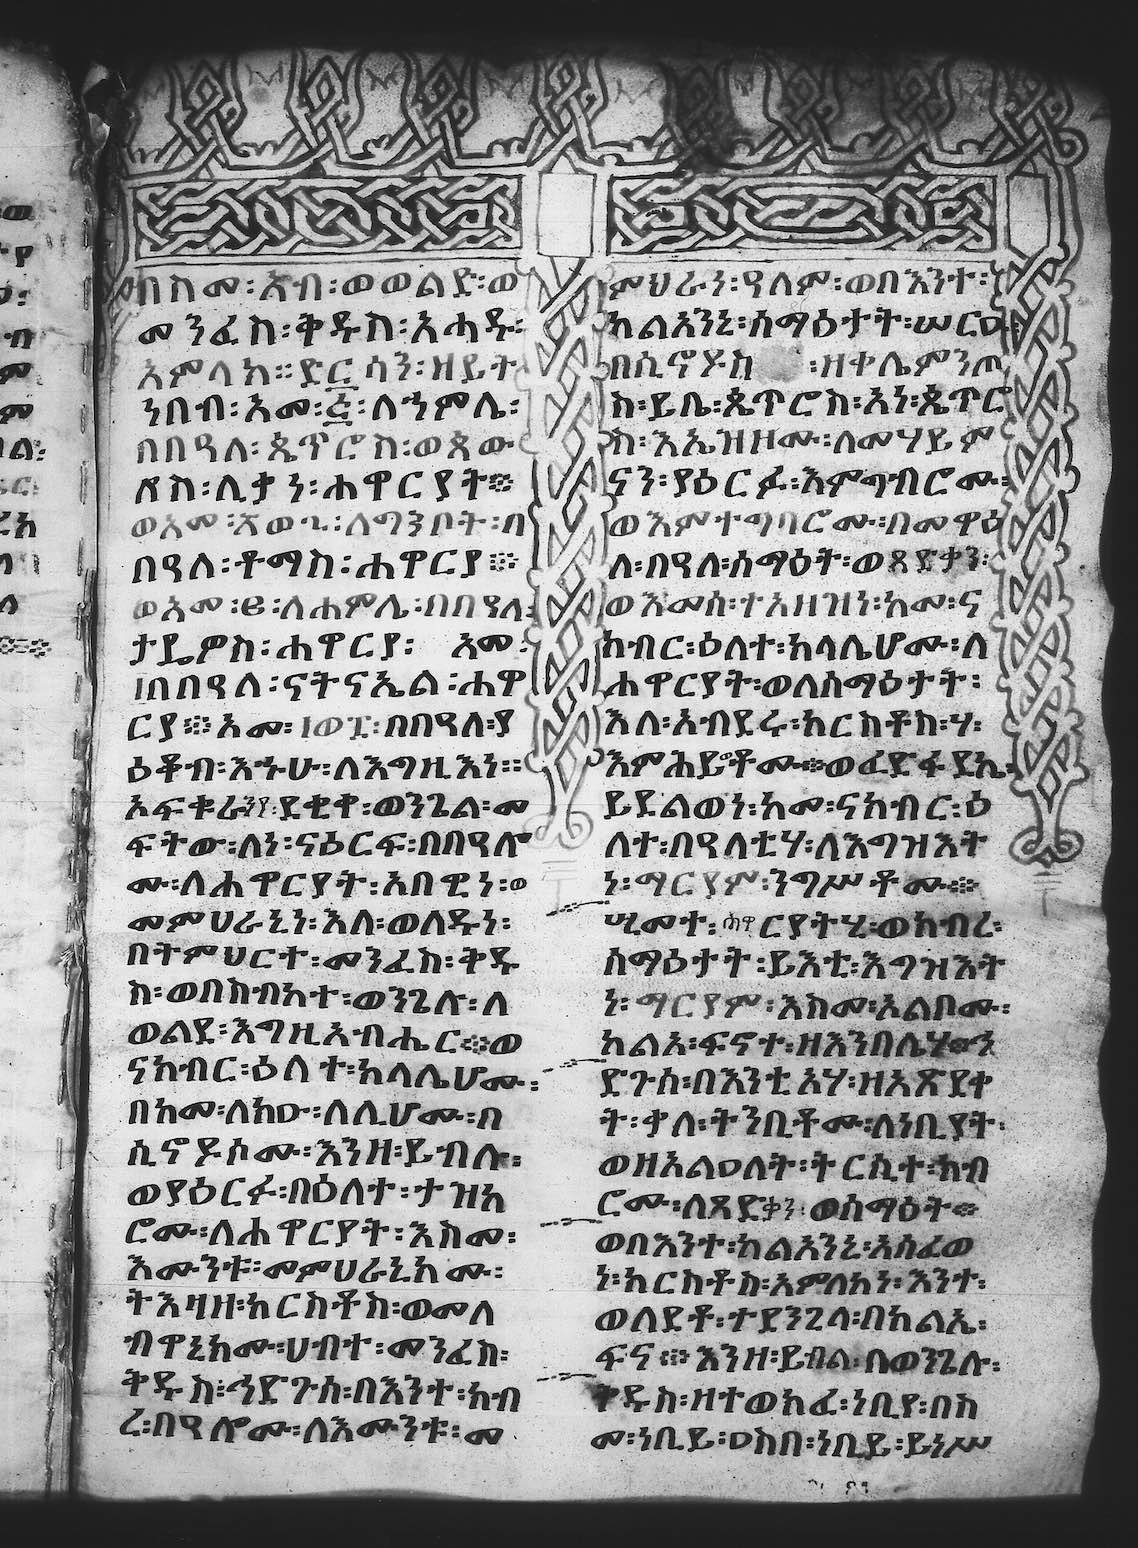 በስመ፡ አብ፡ ወወልድ፡ ወ
መንፈስ፡ ቅዱስ፡ አሐዱ፡
አምላክ። ድርሳን፡ ዘይት
ነበብ፡ አመ፡ ፭፡ ለኀምሌ፡
በበዓለ፡ ጴጥሮስ፡ ወጳው
ሎስ፡ ሊቃነ፡ ሐዋርያት።
ወአመ፡ ፳ወ፯፡ ለግንቦት፡ በ
በዓለ፡ ቶማስ፡ ሐዋርያ።
ወአመ፡ ፱፡ ለሐምሌ፡ በበዓለ፡
ታዴዎስ፡ ሐዋርያ፡ አመ፡
፲በበዓለ፡ ናትናኤል፡ ሐዋ
ርያ። አመ፡ ፲ወ፰፡ በበዓለ፡ ያ
ዕቆብ፡ እኁሁ፡ ለእግዚእነ።
ኦፍቁራን፡ ደቂቀ፡ ወንጌል፡ መ
ፍትው፡ ለነ፡ ናዕርፍ፡ በበዓሎ
ሙ፡ ለሐዋርያት፡ አበዊነ፡ ወ
መምህራኒነ፡ እለ፡ ወለዱነ፡
በትምህርተ፡ መንፈስ፡ ቅዱ
ስ፡ ወበስብከተ፡ ወንጌሉ፡ ለ
ወልደ፡ እግዚአብሔር። ወ
ናክብር፡ ዕለተ፡ ከላሌሆሙ፡
በከመ፡ ለክዑ፡ ለሊሆሙ፡ በ
ሲኖዶሶሙ፡ እንዘ፡ ይብሉ።
ወያዕርፉ፡ በዕለተ፡ ታዝካ
ሮሙ፡ ለሐዋርያት፡ እስመ፡
እሙንቱ፡ መምህራኒክሙ፡
ትእዛዘ፡ ክርስቶስ፡ ወመለ
ብዋኒክሙ፡ ሀብተ፡ መንፈስ፡
ቅዱስ፡ ኅድጉሰ፡ በእንተ፡ ክብ
ረ፡ በዓሎሙ፡ ለእሙንቱ፡ መ
ምህራን፡ ዓለም፡ ወበእንተ፡
ካልአንኒ፡ ሰማዕታት፡ ሠርዑ፡
በሲኖዶስ፡ ዘቀሌምንጦ
ስ፡ ይቤ፡ ጴጥሮስ፡ አነ፡ ጴጥሮ
ስ፡ እኤዝዞሙ፡ ለመሃይም
ናን፡ ያዕርፉ፡ እምግብሮሙ፡
ወእምተግባሮሙ፡ በመዋዕ
ለ፡ በዓለ፡ ሰማዕት፡ ወጻድቃን፡
ወእመሰ፡ ተአዘዝነ፡ ከመ፡ ና
ክብር፡ ዕለተ፡ ከላሌሆሙ፡ ለ
ሐዋርያት፡ ወለሰማዕታት፡
እለ፡ አብደሩ፡ ክርስቶስ፡ ሃ፡
እምሕይቶሙ። ወፈድፋደኬ፡
ይደልወነ፡ ከመ፡ ናክብር፡ ዕ
ለተ፡ በዓለቲሃ፡ ለእግዝእት
ነ፡ ማርያም፡ ንግሥቶሙ።
ሢመተ፡ ሐዋርያትሂ፡ ወክብረ፡
ሰማዕታት፡ ይእቲ፡ እግዝእት
ነ፡ ማርያም፡ እስመ፡ አልቦሙ፡
ካልአ፡ ፍኖተ፡ ዘእንበሌሃ። ኅ
ድጉሰ፡ በእንቲአሃ፡ ዘአጽደቀ
ት፡ ቃለ፡ ትንቢቶሙ፡ ለነቢያት፡
ወዘአልዐለት፡ ትርሲተ፡ ክብ
ሮሙ፡ ለጻድቃን፡ ወሰማዕት።
ወበእንተ፡ ካልአንኒ፡ አሰፈወ
ነ፡ ክርስቶስ፡ አምላክነ፡ እንተ፡
ወለደቶ፡ ተደንጊላ፡ በክልኤ፡
ፍና። እንዘ፡ ይብል፡ በወንጌሉ፡
ቅዱስ፡ ዘተወክፈ፡ ነቢየ፡ በስ
መ፡ ነቢይ፡ ዐስበ፡ ነቢይ፡ ይነሥ